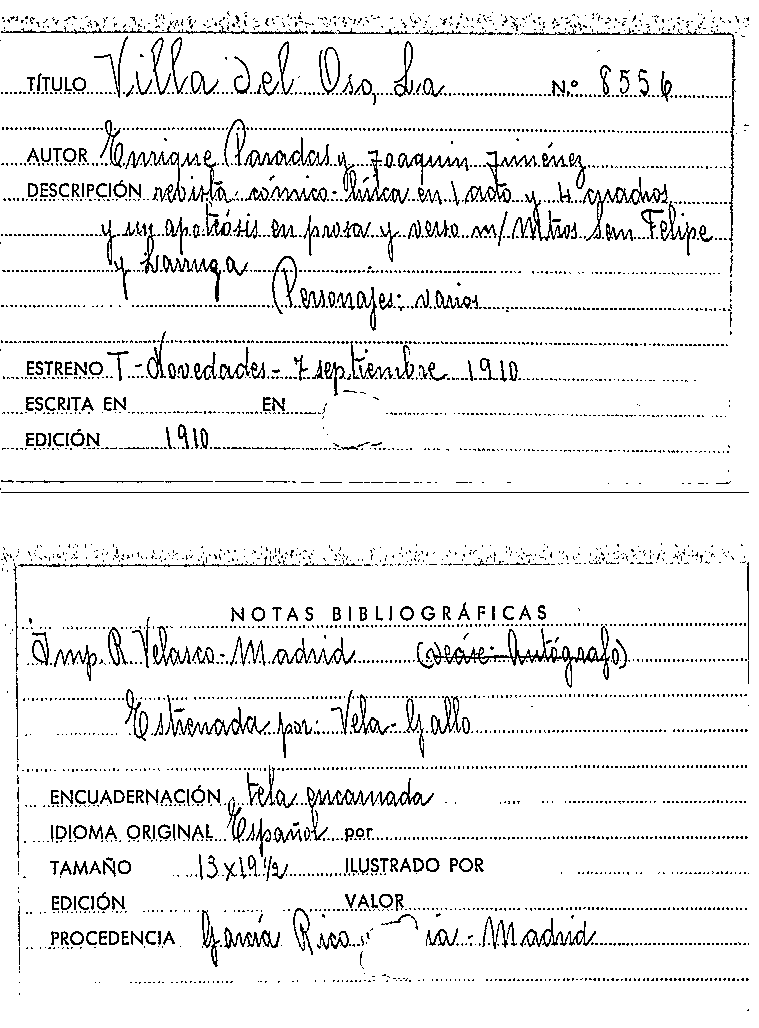 TÍTULO Villa del Oso, La N.º 8556
AUTOR Enrique Paradas y Joaquín Jiménez
DESCRIPCIÓN rebista cómico-lírica en 1 acto y 4 cuadros
y un apoteósis en prosa y verso m/ Mtros San Felipe
y Larruga
Personajes: varios
ESTRENO T-Novedades-7 septiembre 1910
ESCRITA EN EN
EDICIÓN 1910
NOTAS BIBLIOGRÁFICAS
Imp. R Velasco-Madrid (véase-Autógrafo)
Estrenada por: Vela-Gallo
ENCUADERNACIÓN tela encarnada
IDIOMA ORIGINAL Español por
TAMAÑO 13x19 1/2 ILUSTRADO POR
EDICIÓN VALOR
PROCEDENCIA García Rico y ía-Madrid